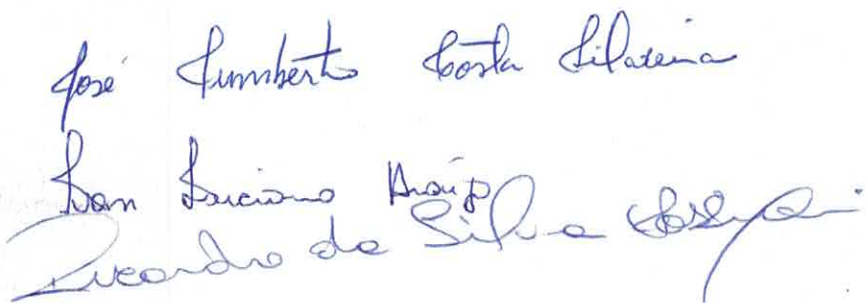 José Humberto Costa
Ivan Luciano Araújo
Ricardo da Silva